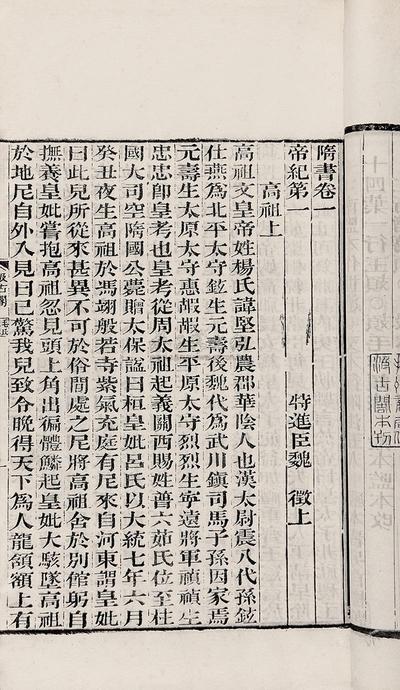 隋書卷一
帝紀第一
特進臣魏 徵上
高祖上
高祖文皇帝姓楊氏諱堅弘農郡華陰人也漢太尉震八代孫鉉
仕燕爲北平太守鉉生元壽後魏代爲武川鎮司馬子孫因家焉
元壽生太原太守惠嘏嘏生平原太守烈烈生寧遠將軍禎禎生
忠忠卽皇考也皇考從周太祖起義關西賜姓普六茹氏位至柱
國大司空隋國公薨贈太保諡曰桓皇妣呂氏以大統七年六月
癸丑夜生高祖於馮翊般若寺紫氣充庭有尼來自河東謂皇妣
曰此兒所從來甚異不可於俗間處之尼將高祖舍於別館躬自
撫養皇妣嘗抱高祖忽見頭上角出徧體鱗起皇妣大駭墜高祖
於地尼自外入見曰已驚我兒致令晚得天下爲人龍頷額上有
汲古閣